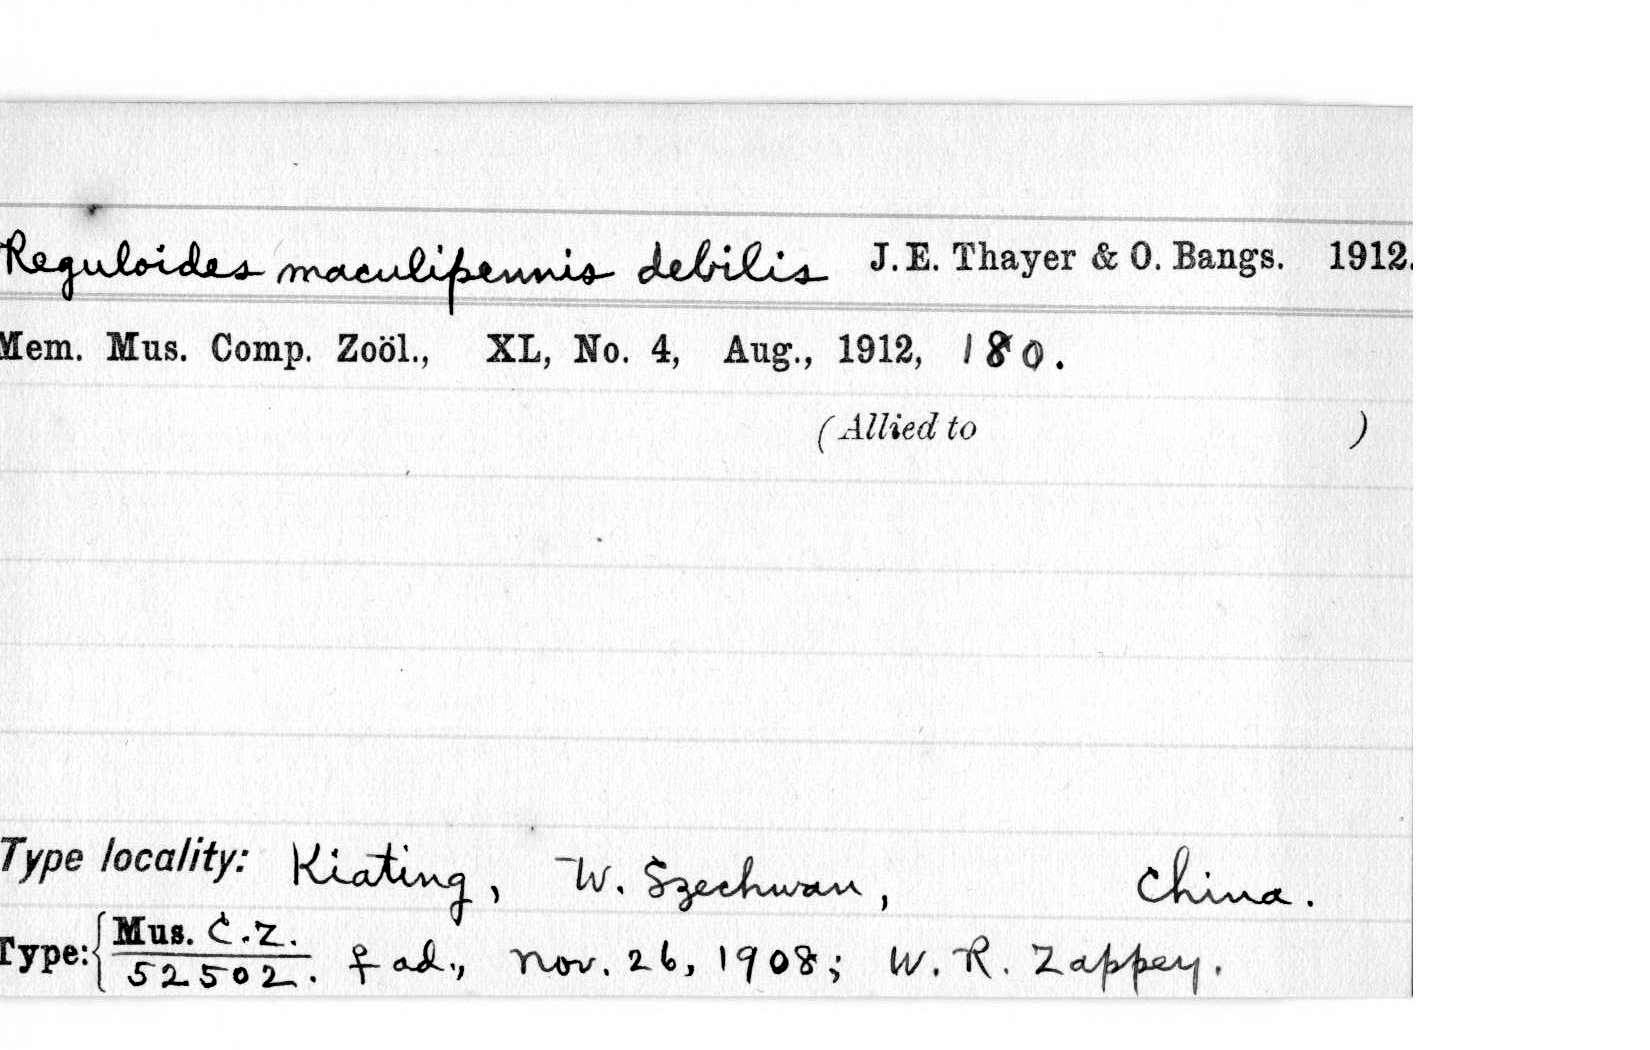 Reguloides maculipennis debilis J. E. Thayer & O. Bangs. 1912.
Mem. Mus. Comp. Zoöl., XL, No. 4, Aug., 1912, 180.
(Allied to )
Type locality: Kiating, W. Szechwan, China.
Type: { Mus. C.Z.
52502. ♀ ad., Nov. 26, 1908; W. R. Zappey.